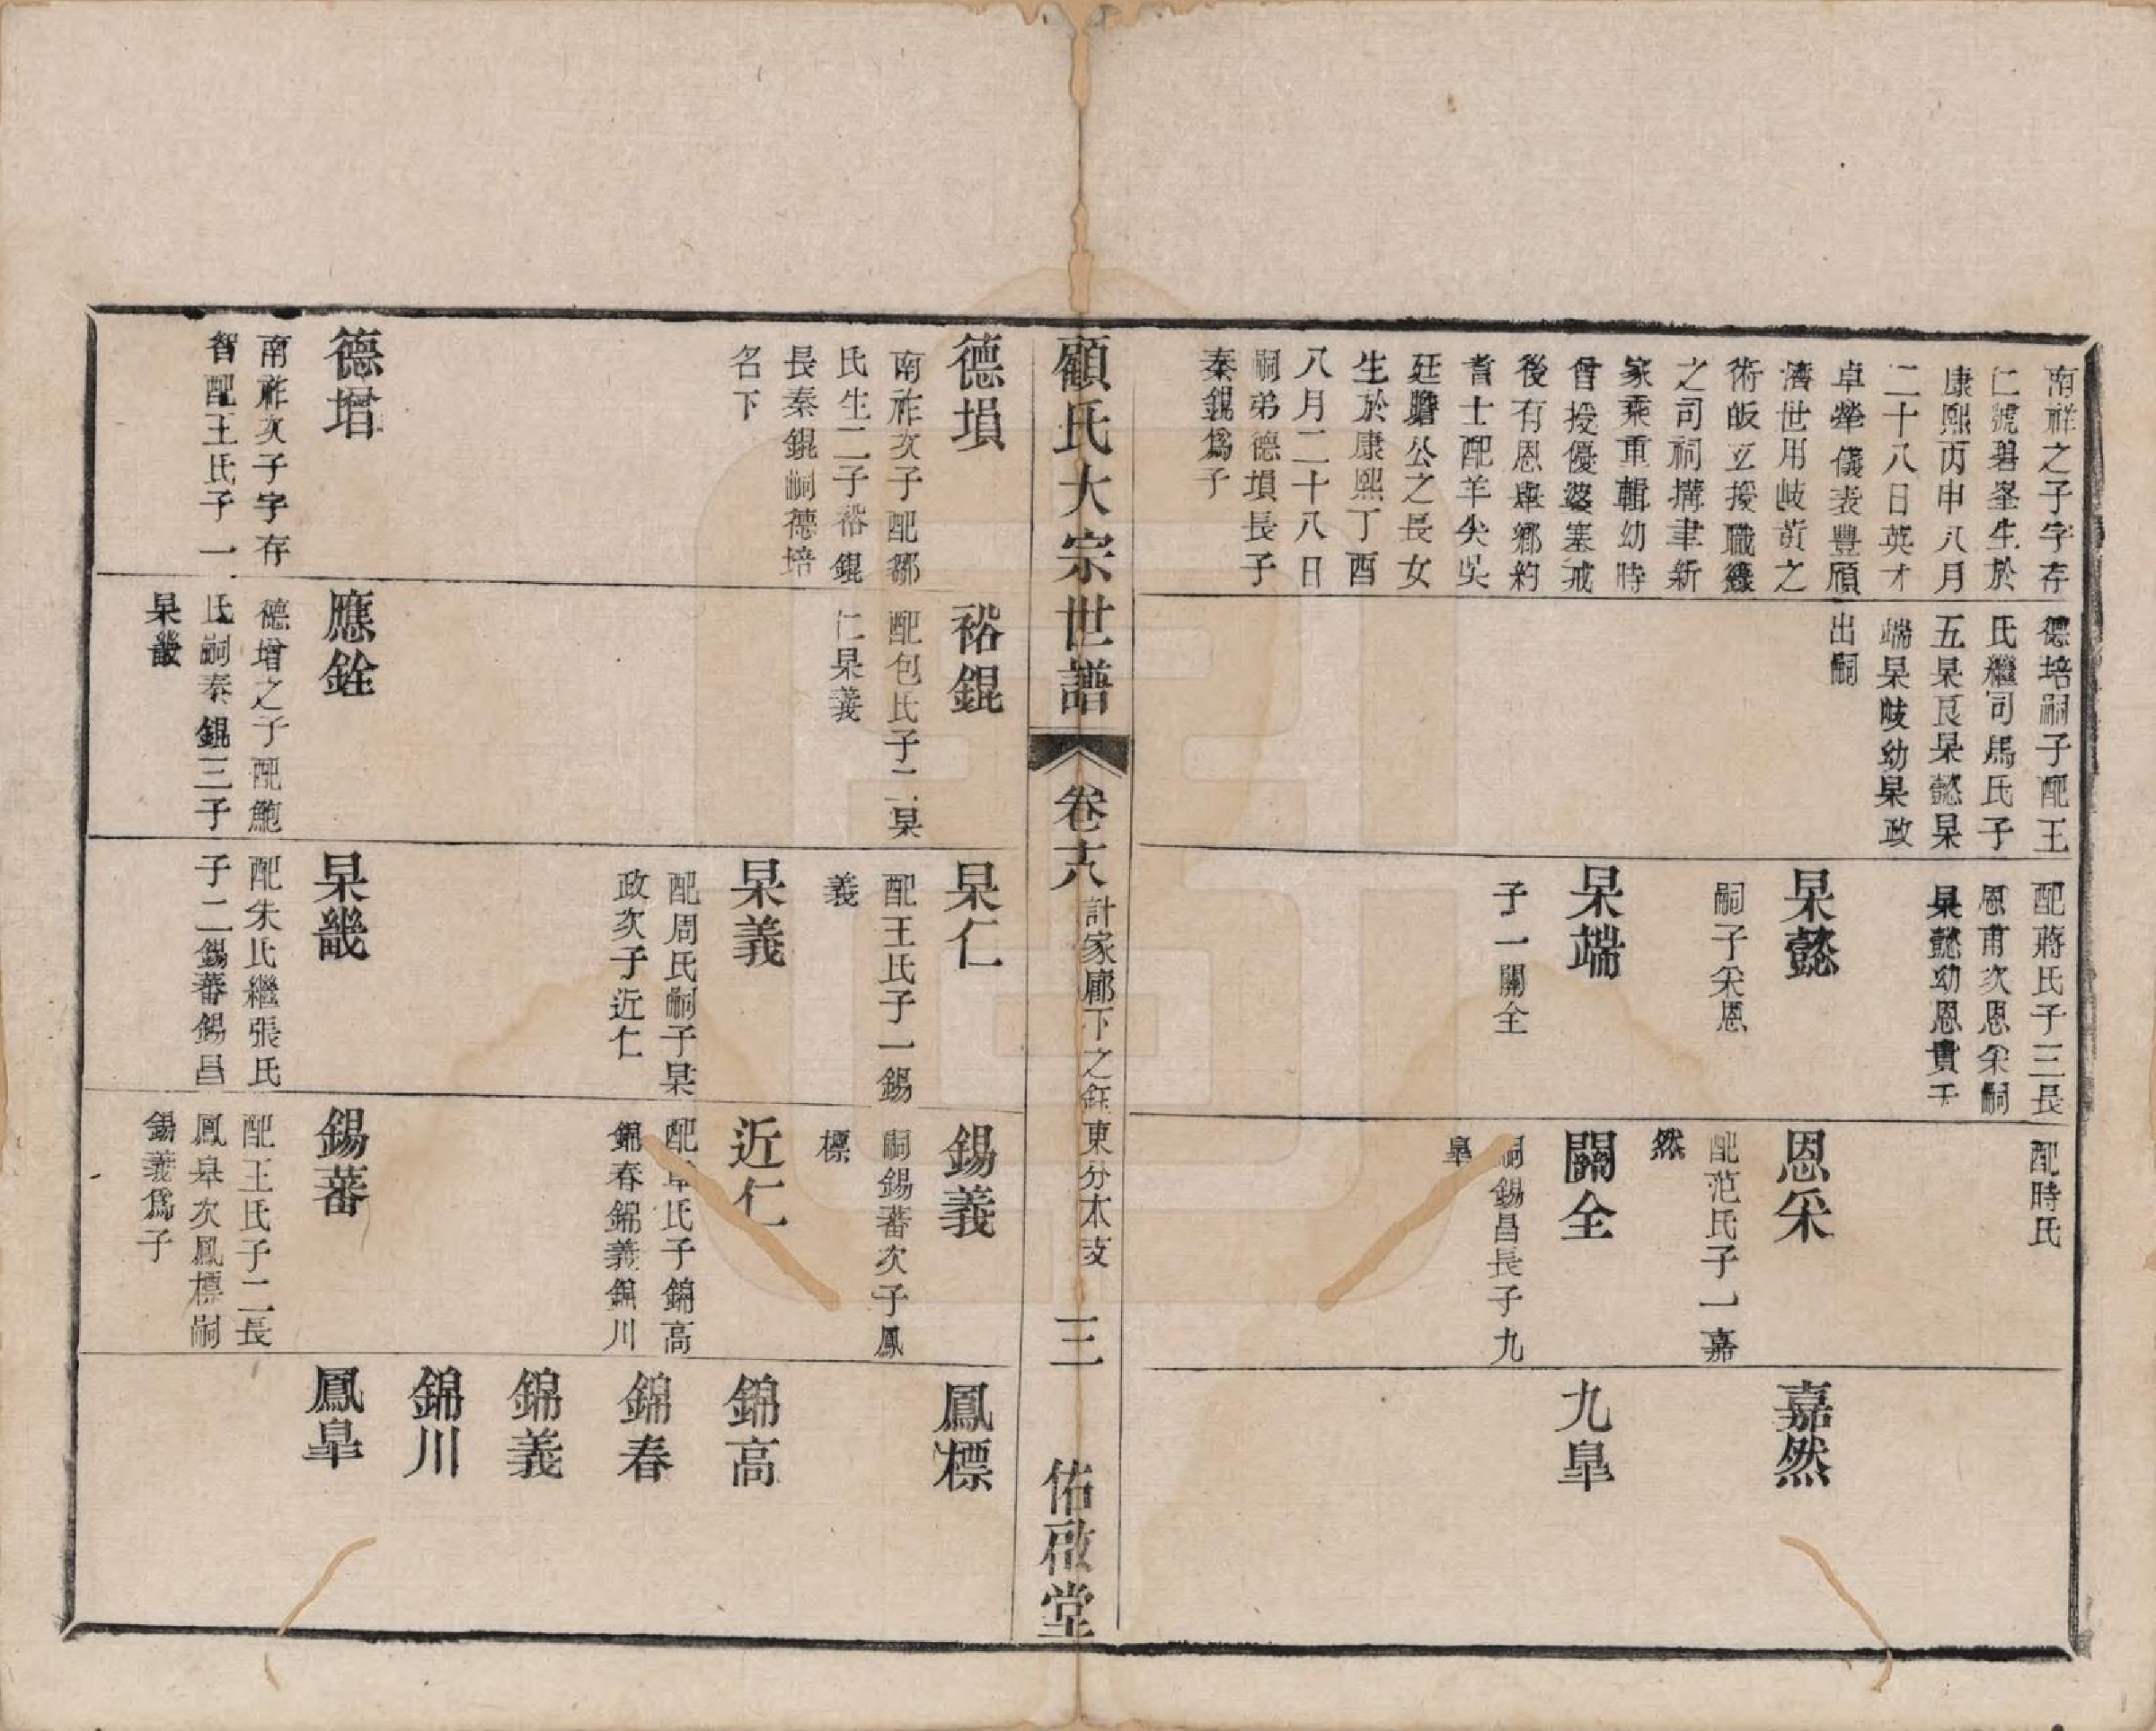 南祥之子字存
仁號碧峯生於
康熙丙申八月
二十八日英才
卓犖儀表豐頎
濟世用岐黃之
術皈立授職錄
之司祠搆聿新
家乘重輯幼時
曾授優婆塞戒
後有恩舉鄉約
耆士配羊尖吳
廷贍公之長女
生於康熙丁酉
八月二十八日
嗣弟德塤長子
秦錕爲子
德培嗣子配王
氏繼司馬氏子
五杲良杲懿杲
端杲岐幼杲政
出嗣
配蔣氏子三長
恩甫次恩采嗣
杲懿幼恩貴王
配時氏
杲懿
嗣子采恩
恩采
配范氏子一嘉
然
嘉然
杲端
子一關全
關全
嗣錫昌長子九
皐
九皐
顧氏大宗世譜
卷六
計家廊下之鈺東分本支
三
佑啟堂
德塤
南祚次子配鄒
氏生二子裕錕
長秦錕嗣德培
名下
裕錕
配包氏子二杲
仁杲義
杲仁
配王氏子一錫
義
錫義
嗣錫蕃次子鳳
標
鳳標
杲義
配周氏嗣子杲
政次子近仁
近仁
配章氏子錦高
錦春錦義錦川
錦高
錦春
錦義
錦川
德增
南祚次子字存
智配王氏子一
應銓
德增之子配鮑
氏嗣泰錕三子
杲畿
杲畿
配朱氏繼張氏
子二錫蕃錫昌
錫蕃
配王氏子二長
鳳皐次鳳標嗣
錫義爲子
鳳皐